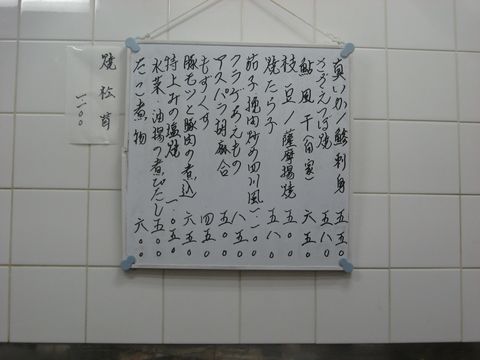 真いか/鯵刺身 五五〇
さざえつぼ焼 五八〇
鮎風干(自家) 六五〇
枝豆/薩摩揚焼 五五〇
焼たら子 五八〇
茄子挽肉炒め四川風 一一〇〇
クラゲあえもの 八五〇
アスパラ胡麻合 五五〇
もずくす 四五〇
豚モツと豚肉の煮込 六五〇
特上みの塩焼 一〇五〇
水菜・油揚の煮びたし 五〇〇
たこ煮物 六〇〇
焼松茸 一一〇〇